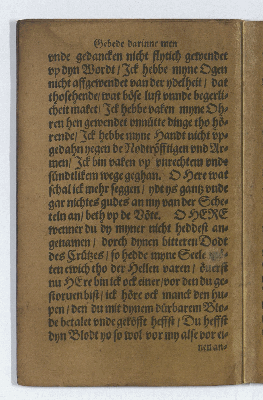 Gebede darinne men
vnde gedancken nicht flytich gewendet
vp dyn Wordt / Ick hebbe myne Ogen
nicht affgewendet van der ydelheit / dat
thosehende / wat böse lust vnnde begerli-
cheit maket / Ick hebbe vaken myne Oh-
ren hen gewendet vnnütte dinge tho hö-
rende / Ick hebbe myne Handt nicht vp-
gedahn yegen de Nodtröfftigen vnd Ar-
men / Ick bin vaken vp vnrechtem vnde
sündtliken wege geghan. O Here wat
schal ick mehr seggen / ydt ys gantz vnde
gar nichtes gudes an my van der Sche-
teln an / beth vp de Vöte. O HERE
wenner du dy myner nicht heddest an-
genamen / dorch dynen bitteren Dodt
des Crützes / so hedde myne Seele
ten ewich tho der Hellen varen / öuerst
nu HEre bin ick ock einer / vor den du ge-
storuen bist / ick höre ock manck den hu-
pen / den du mit dynem dürbarem Blo-
de betalet vnde geköfft heffst / Du heffst
dyn Blodt yo so wol vor my alse vor ei-
nen an-